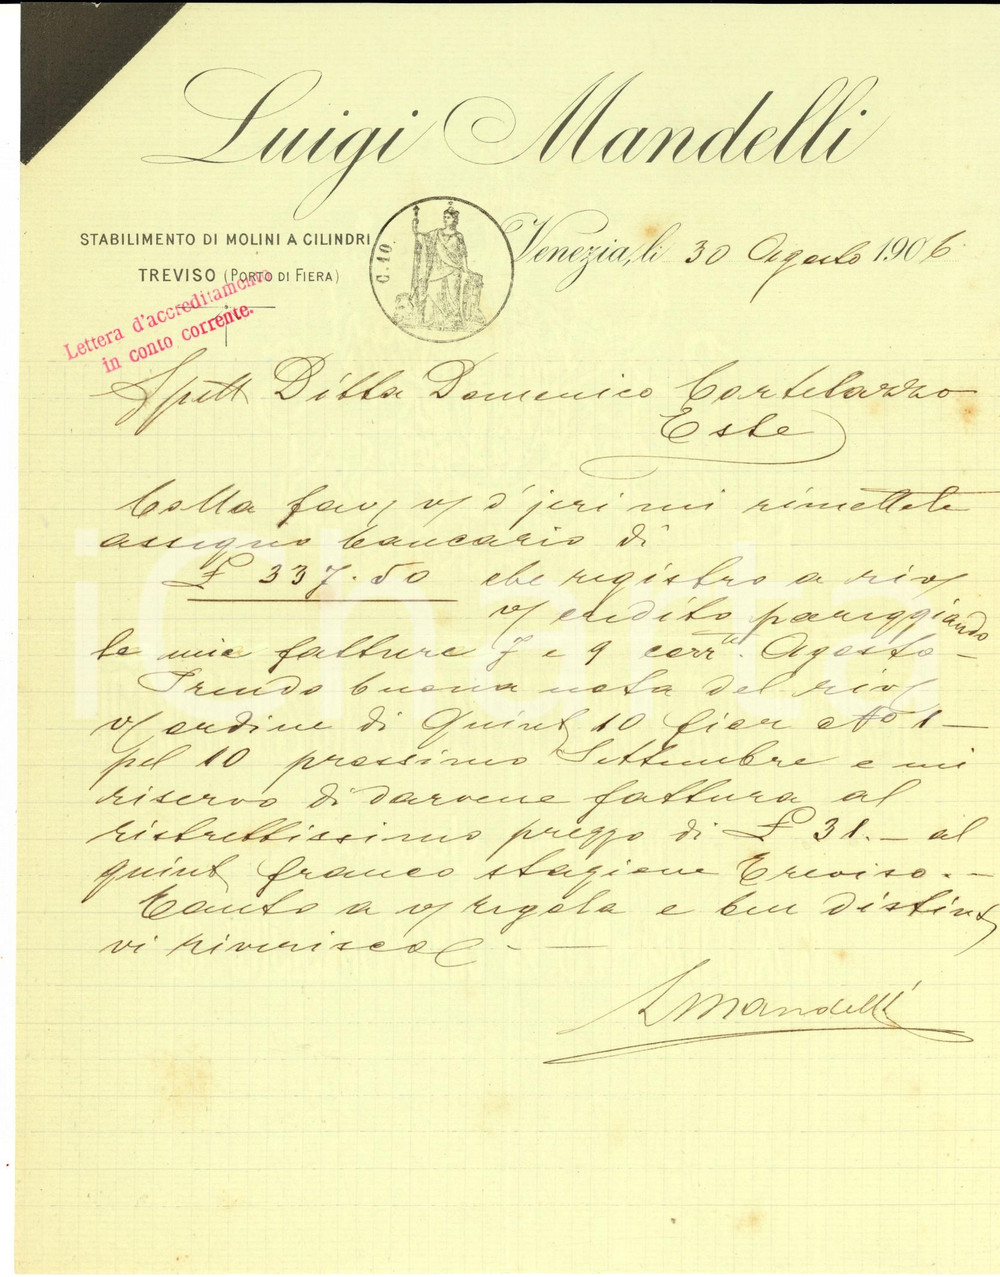 Luigi Mandelli
STABILIMENTO DI MOLINI A CILINDRI
TREVISO (PORTO DI FIERA)
C. 10.
Venezia, li 30 Agosto 1906
Lettera d'accreditamento
in conto corrente.
Spett Ditta Domenico Cortelazzo
Este
Colla fav v/ d'jeri mi rimettete
assegno bancario di
£ 337.50 che registro a riv/
v/ credito pareggiando
le mie fatture 7 e 9 corr. Agosto
Prendo buona nota del riv/
v/ ordine di Quint 10 fior No 1 —
pel 10 prossimo Settembre e mi
riservo di darvene fattura al
ristrettissimo prezzo di £ 31. — al
quint franco stazione Treviso. —
Tanto a v/ regola e ben distint
vi riverisco —
L Mandelli
iCharta